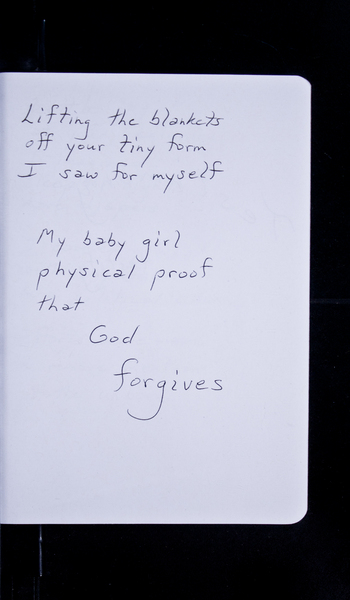 Lifting the blankets
off your tiny form
I saw for myself
My baby girl
physical proof
that
God
forgives